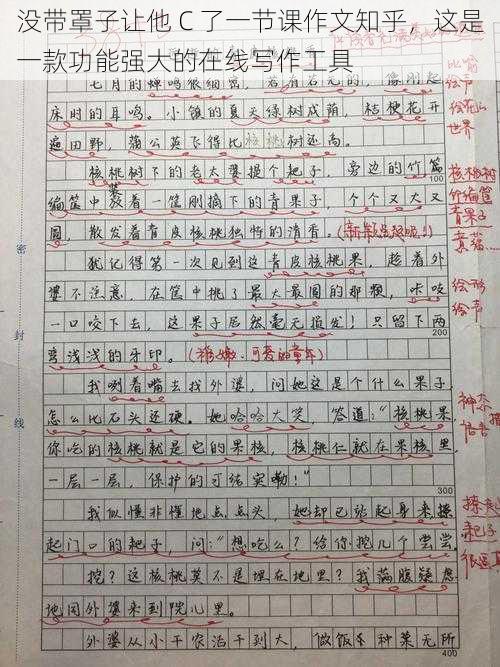 没带罩子让他 C 了一节课作文知乎，这是
一款功能强大的在线写作工具
七月的蝉鸣很细密，若有若无的，像刚起
床时的耳鸣。小镇的夏天绿树成荫，桔梗花开
遍田野，蒲公英飞得比核桃树还高。
核桃树下的老太婆摸个耙子，旁边的竹篮
100
编筐中装着一筐刚摘下的青果子，个个又大又
圆，散发着青皮核桃独特的清香。
犹记得第一次见到这青皮核桃果，趁着外
婆不注意，在筐中挑了最大最圆的那颗，咔咬
一口咬下去，这果子居然毫无损发！只留下两
200
弯浅浅的牙印。（稚嫩、可爱的童年）
我咧着嘴去找外婆，问她这是个什么果子，
怎么比石头还硬。她哈哈大笑，答道：“核桃果，
你吃的核桃就是它的果核，核桃仁就在果核里，
一层一层，保护的可结实嘞！”
300
我似懂非懂地点点头，她却已站起身来操
起门口的耙子，问：“想吃么？给你挖几个尝尝。
挖？这核桃莫不是埋在地里？我满腹疑虑
地同外婆来到院儿里。
外婆从小干农活干到大，做饭各种菜无所
400
密
封
线
比喻
绘声
世界
核桃树
竹编筐
青果子
绘形
绘声
神态
耙子